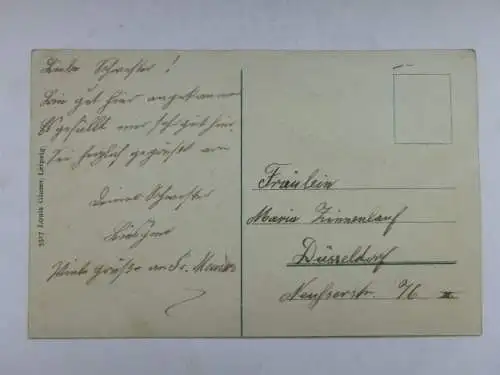 Liebe Schwester!
Bin gut hier angekommen
Es gefällt mir sehr gut hier.
Sei herzlich gegrüßt von
Deiner Schwester
Viele Grüße an Fr.
Fräulein
Maria Zimmenlauf
Düsseldorf
Neußerstr. 76 III
5517 Louis Glaser, Leipzig.